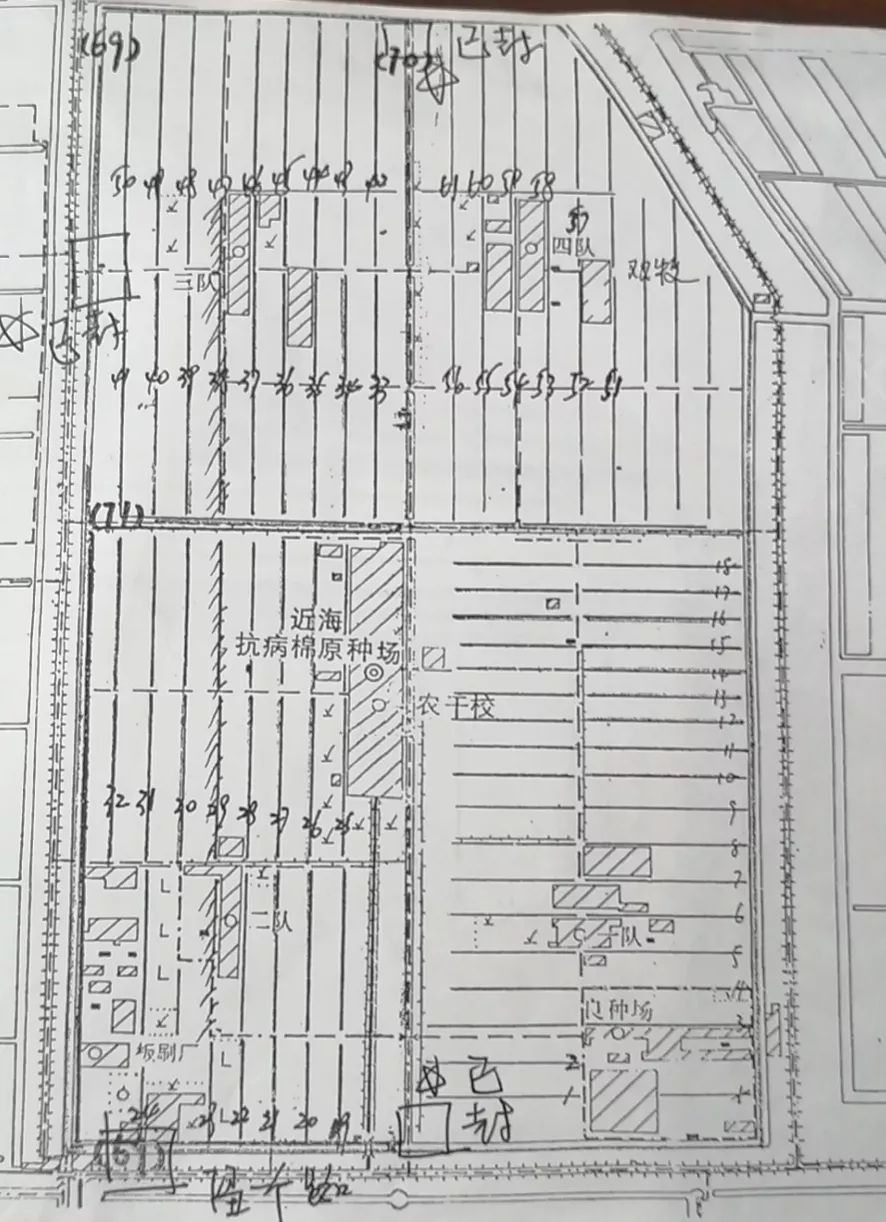 (69) (70) 已封
50 49 48 47 46 45 44 43 42 61 60 59 58
57
四队
三队
已封
41 40 39 38 37 36 35 34 33 56 55 54 53 52 51
(71)
18
17
近海
16
抗病棉原种场
15
14
13
农干校
12
11
10
32 31 30 29 28 27 26 25
9
8
7
6
二队
一队
5
4
良种场
3
2
1
已封
23 22 21 20 19